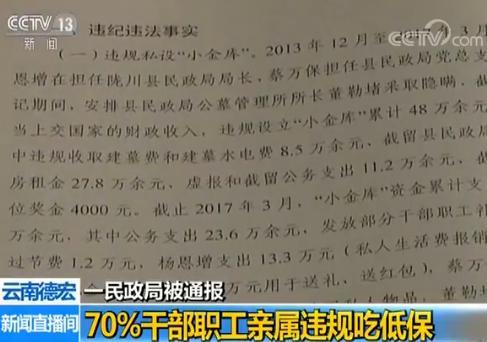 CCTV 13
新闻
CCTV.com
、违纪违法事实
（一）违规私设“小金库”。2013 年 12 月至 3 月
恩增在担任陇川县民政局局长、蔡万保担任县民政局党总支
记期间，安排县民政局公墓管理所所长董勒堵采取隐瞒、截
当上交国家的财政收入，违规设立“小金库”累计 48 万余元
中违规收取建墓费和建墓水电费 8.5 万余元、截留县民政局
房租金 27.8 万余元，虚报和截留公务支出 11.2 万余元、截
位奖金 4000 元。截止 2017 年 3 月，“小金库”资金累计支
万余元，其中公务支出 23.6 万余元，发放部分干部职工补
过节费 1.2 万元，杨恩增支出 13.3 万元（私人生活费报销
万元用于送礼、送红包），蔡万
云南德宏
一民政局被通报
新闻直播间
70%干部职工亲属违规吃低保